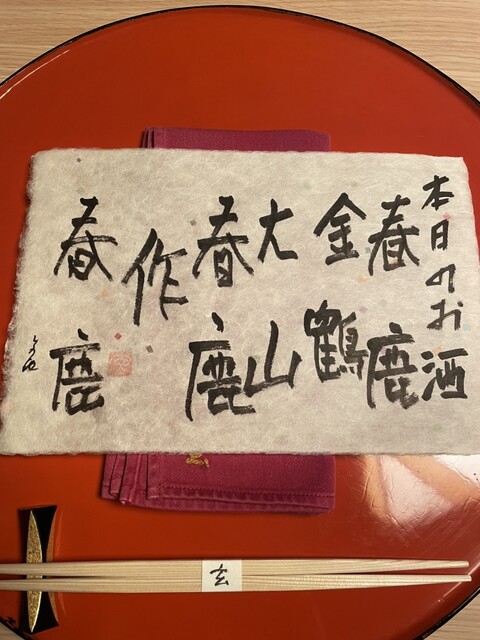 本日のお酒
春鹿
金鶴
大山
春鹿
作
春鹿
玄